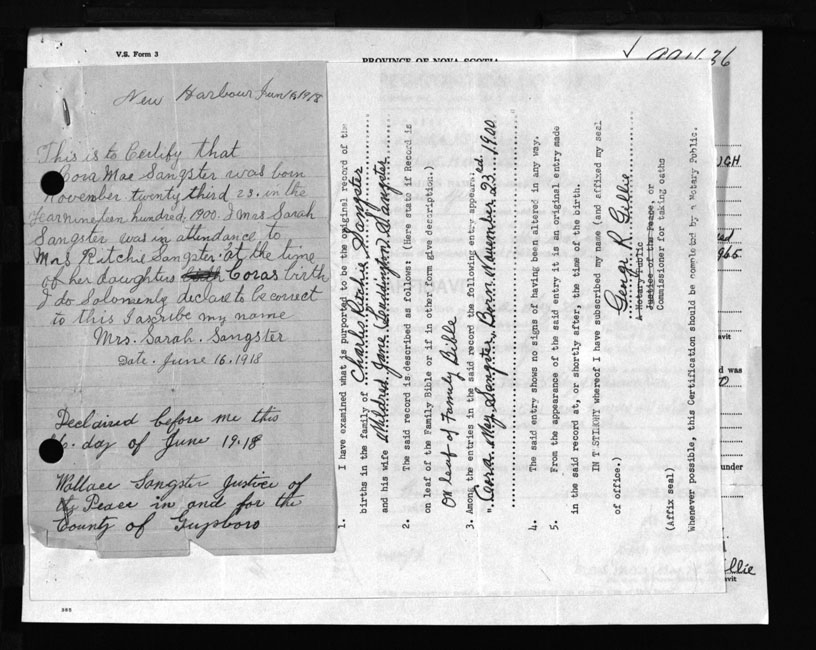 V.S. Form 3
PROVINCE OF NOVA SCOTIA
36
New Harbour June 16 1918
This is to Certify that
Cora Mae Sangster was born
November twenty third 23. in the
Year nineteen hundred, 1900. I Mrs Sarah
Sangster was in attendance to
Mrs Ritchie Sangster at the time
of her daughters Coras birth
I do Solomenly declare to be correct
to this I ascribe my name
Mrs. Sarah. Sangster
Date. June 16. 1918
Declaired before me this
16. day of June 19.18
Wallace Sangster Justice of
Peace in and for the
County of Guysboro
1. I have examined what is purported to be the original record of the
births in the family of Charles Ritchie Sangster
and his wife Mildred Jane (Luddington) Sangster
2. The said record is described as follows: (Here state if Record is
on leaf of the Family Bible or if in other form give description.)
On leaf of Family Bible
3. Among the entries in the said record the following entry appears:
"Cora May Sangster, Born November 23rd. 1900"
4. The said entry shows no signs of having been altered in any way.
5. From the appearance of the said entry it is an original entry made
in the said record at, or shortly after, the time of the birth.
IN T STILMONY whereof I have subscribed my name (and affixed my seal
of office.)
George R Gillie
A Notary Public
Justice of the Peace, or
Commissioner for taking oaths
(Affix seal)
Whenever possible, this Certification should be completed by a Notary Public.
UGH
965.
avit
d was
under
llie
avit